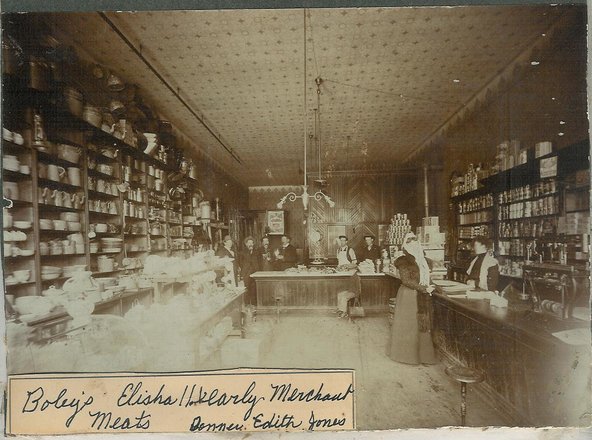 Boley's Elisha Early Merchant
Meats Donner Edith Jones